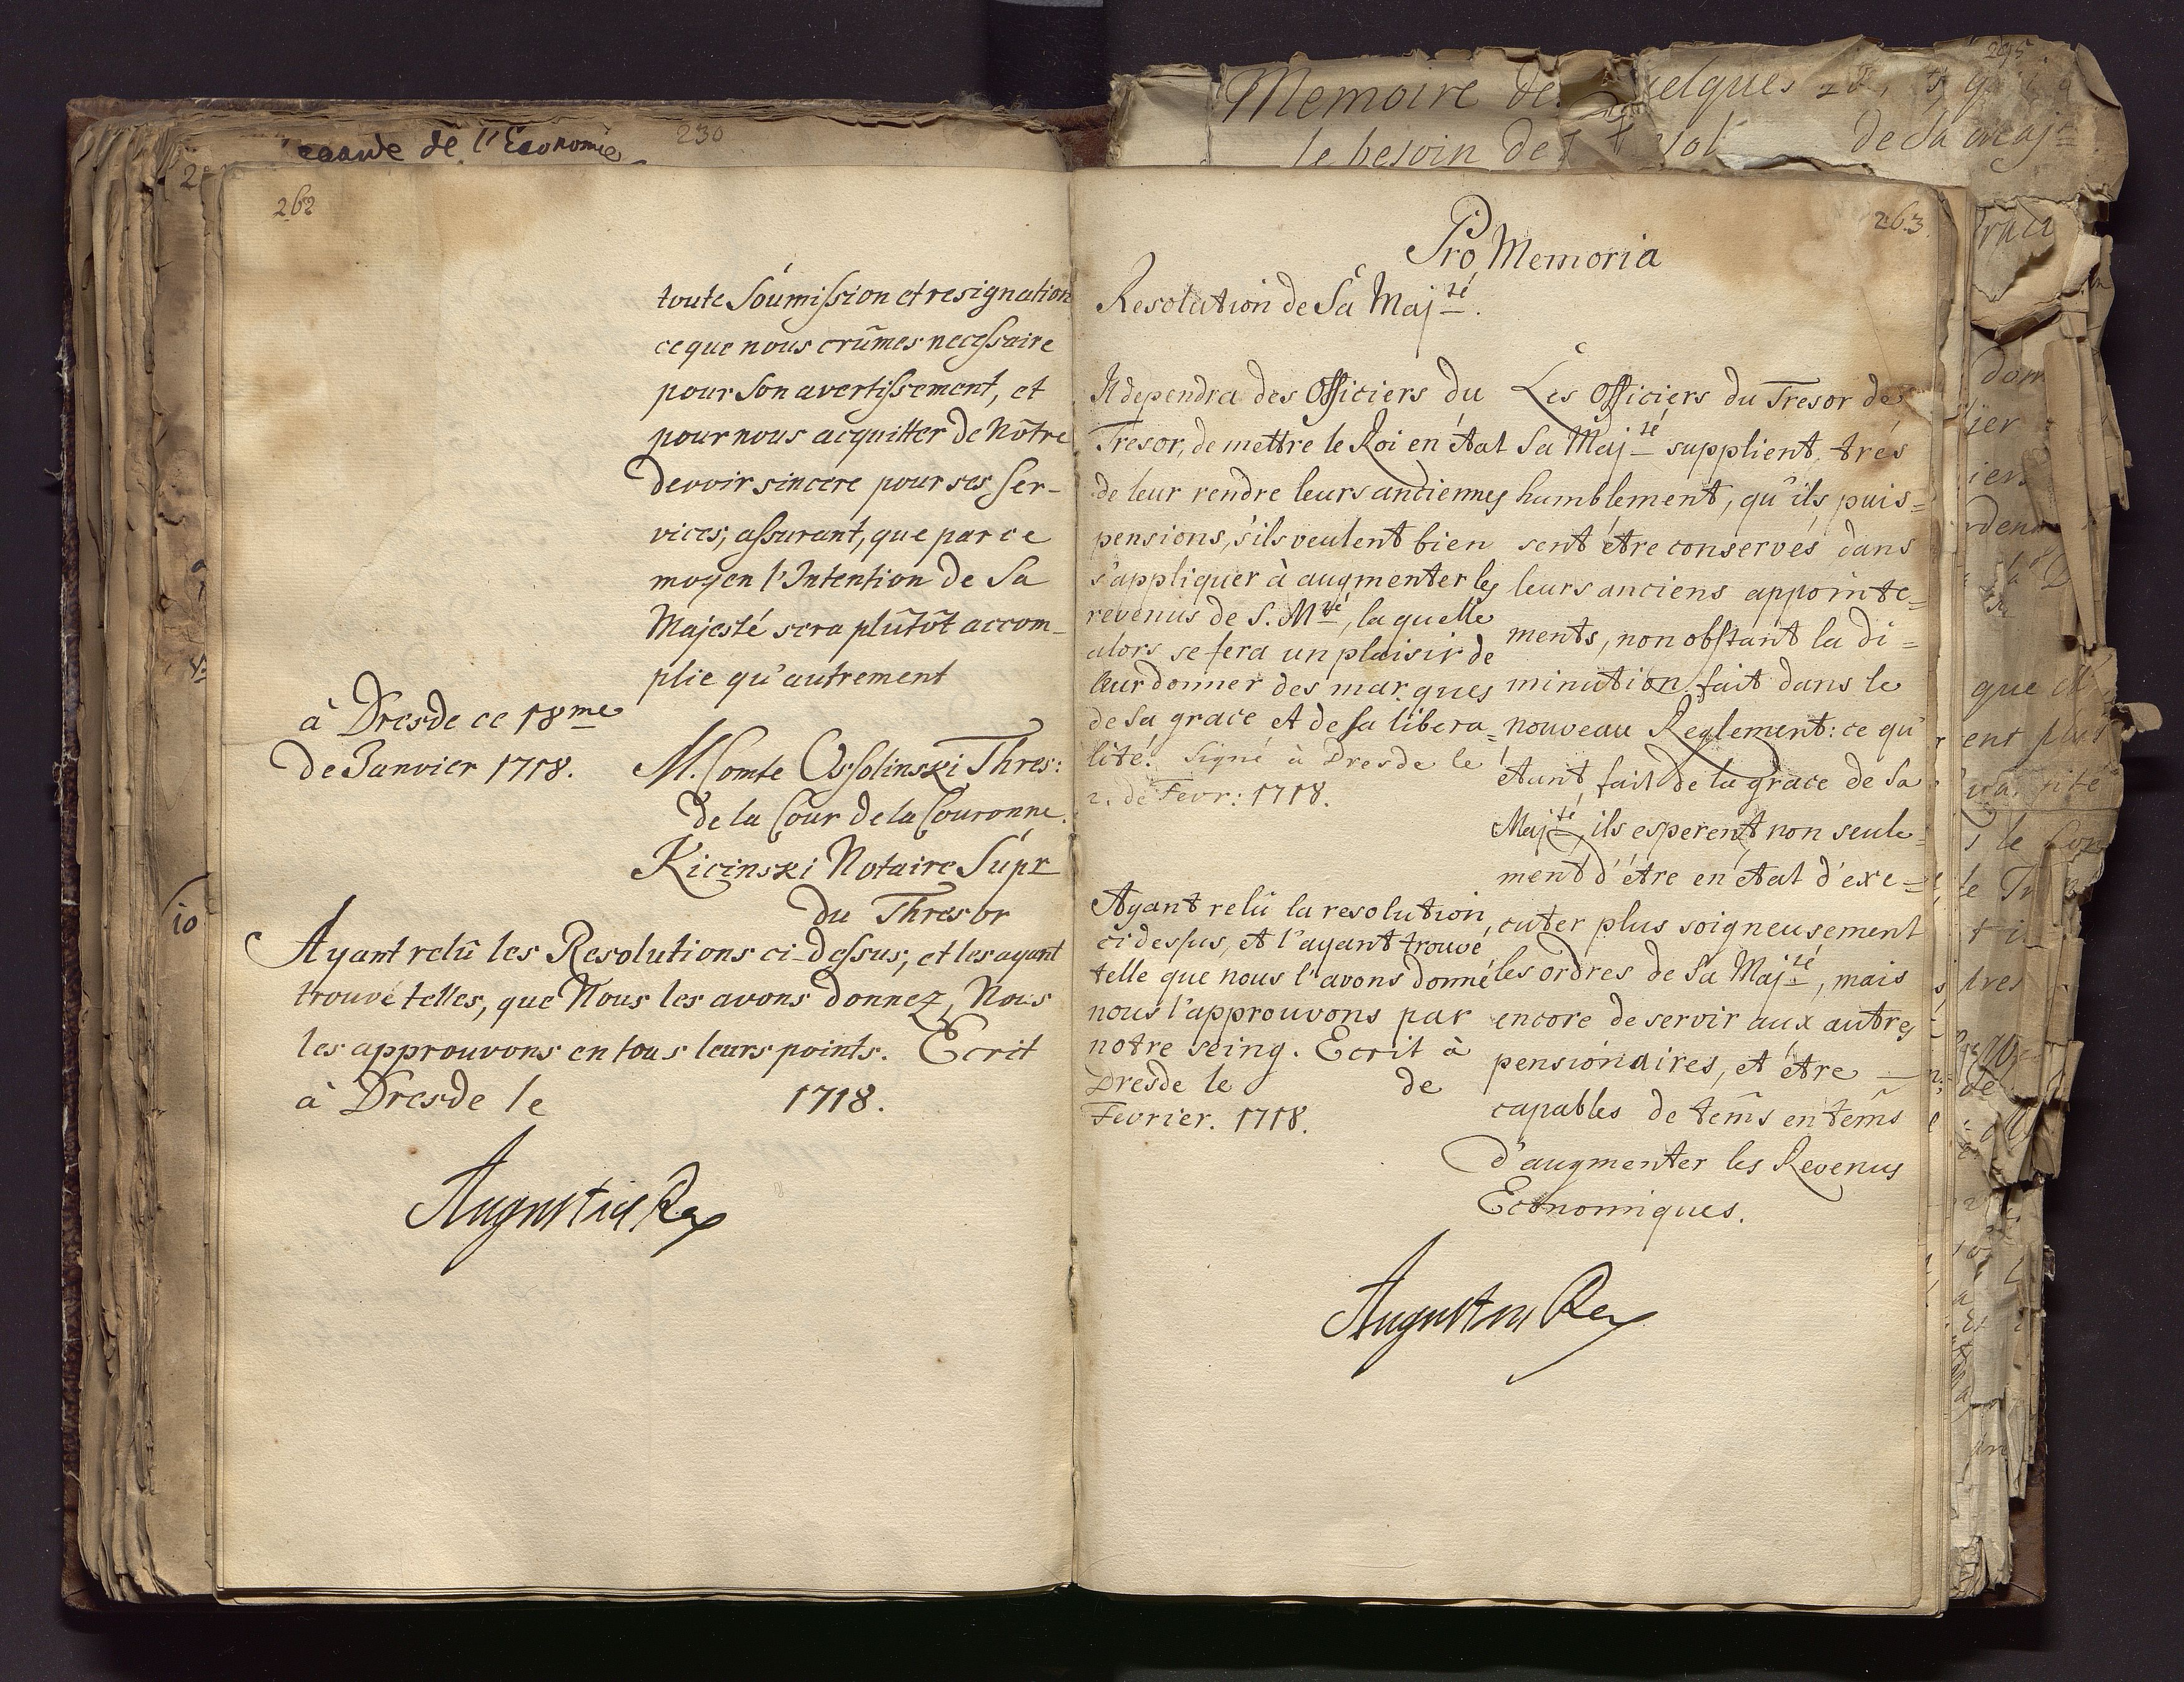 de l'Economie
230
262
toute Soumission et resignation
ce que nous crûmes necessaire
pour Son avertissement, et
pour nous acquitter de Nôtre
devoir sincere pour ses Ser-
vices; assurant, que par ce
moyen l'Intention de Sa
Majesté sera plûtôt accom-
plie qu'autrement
à Dresde ce 18me
de Janvier 1718.
M. Comte Ossolinski Thres:
de la Cour de la Couronne.
Kicinski Notaire Supr
du Thresor
Ayant relû les Resolutions ci-dessus, et les ayant
trouvé telles, que Nous les avons donnez, Nous
les approuvons en tous leurs points. Ecrit
à Dresde le 1718.
Augustus Rex
10
295
Memoire de quelques
le besoin de de Sa Majté
263
Pro Memoria
Resolution de Sa Majté.
Il dependra des Officiers du
Tresor, de mettre le Roi en état
de leur rendre leurs anciennes
pensions, s'ils veulent bien
s'appliquer à augmenter les
revenus de S. Mté, la quelle
alors se fera un plaisir de
leur donner des marques
de Sa grace et de sa libera=
lité. Signé à Dresde le
2. de Fevr: 1718.
Ayant relû la resolution
ci dessus, et l'ayant trouvé
telle que nous l'avons donné
nous l'approuvons par
notre seing. Ecrit à
Dresde le de
Fevrier. 1718.
Les Officiers du Tresor de
Sa Majté supplient, trés
humblement, qu'ils puis=
sent étre conservés dans
leurs anciens appointe=
ments, non obstant la di=
minution fait dans le
nouveau Reglement: ce qu'
étant fait de la grace de Sa
Majté, ils esperent non seule=
ment d'étre en état d'exe=
cuter plus soigneusement
les ordres de Sa Majté, mais
encore de servir aux autres
pensionaires, et étre
capables de tems en tems
d'augmenter les Revenus
Economiques.
Augustus Rex